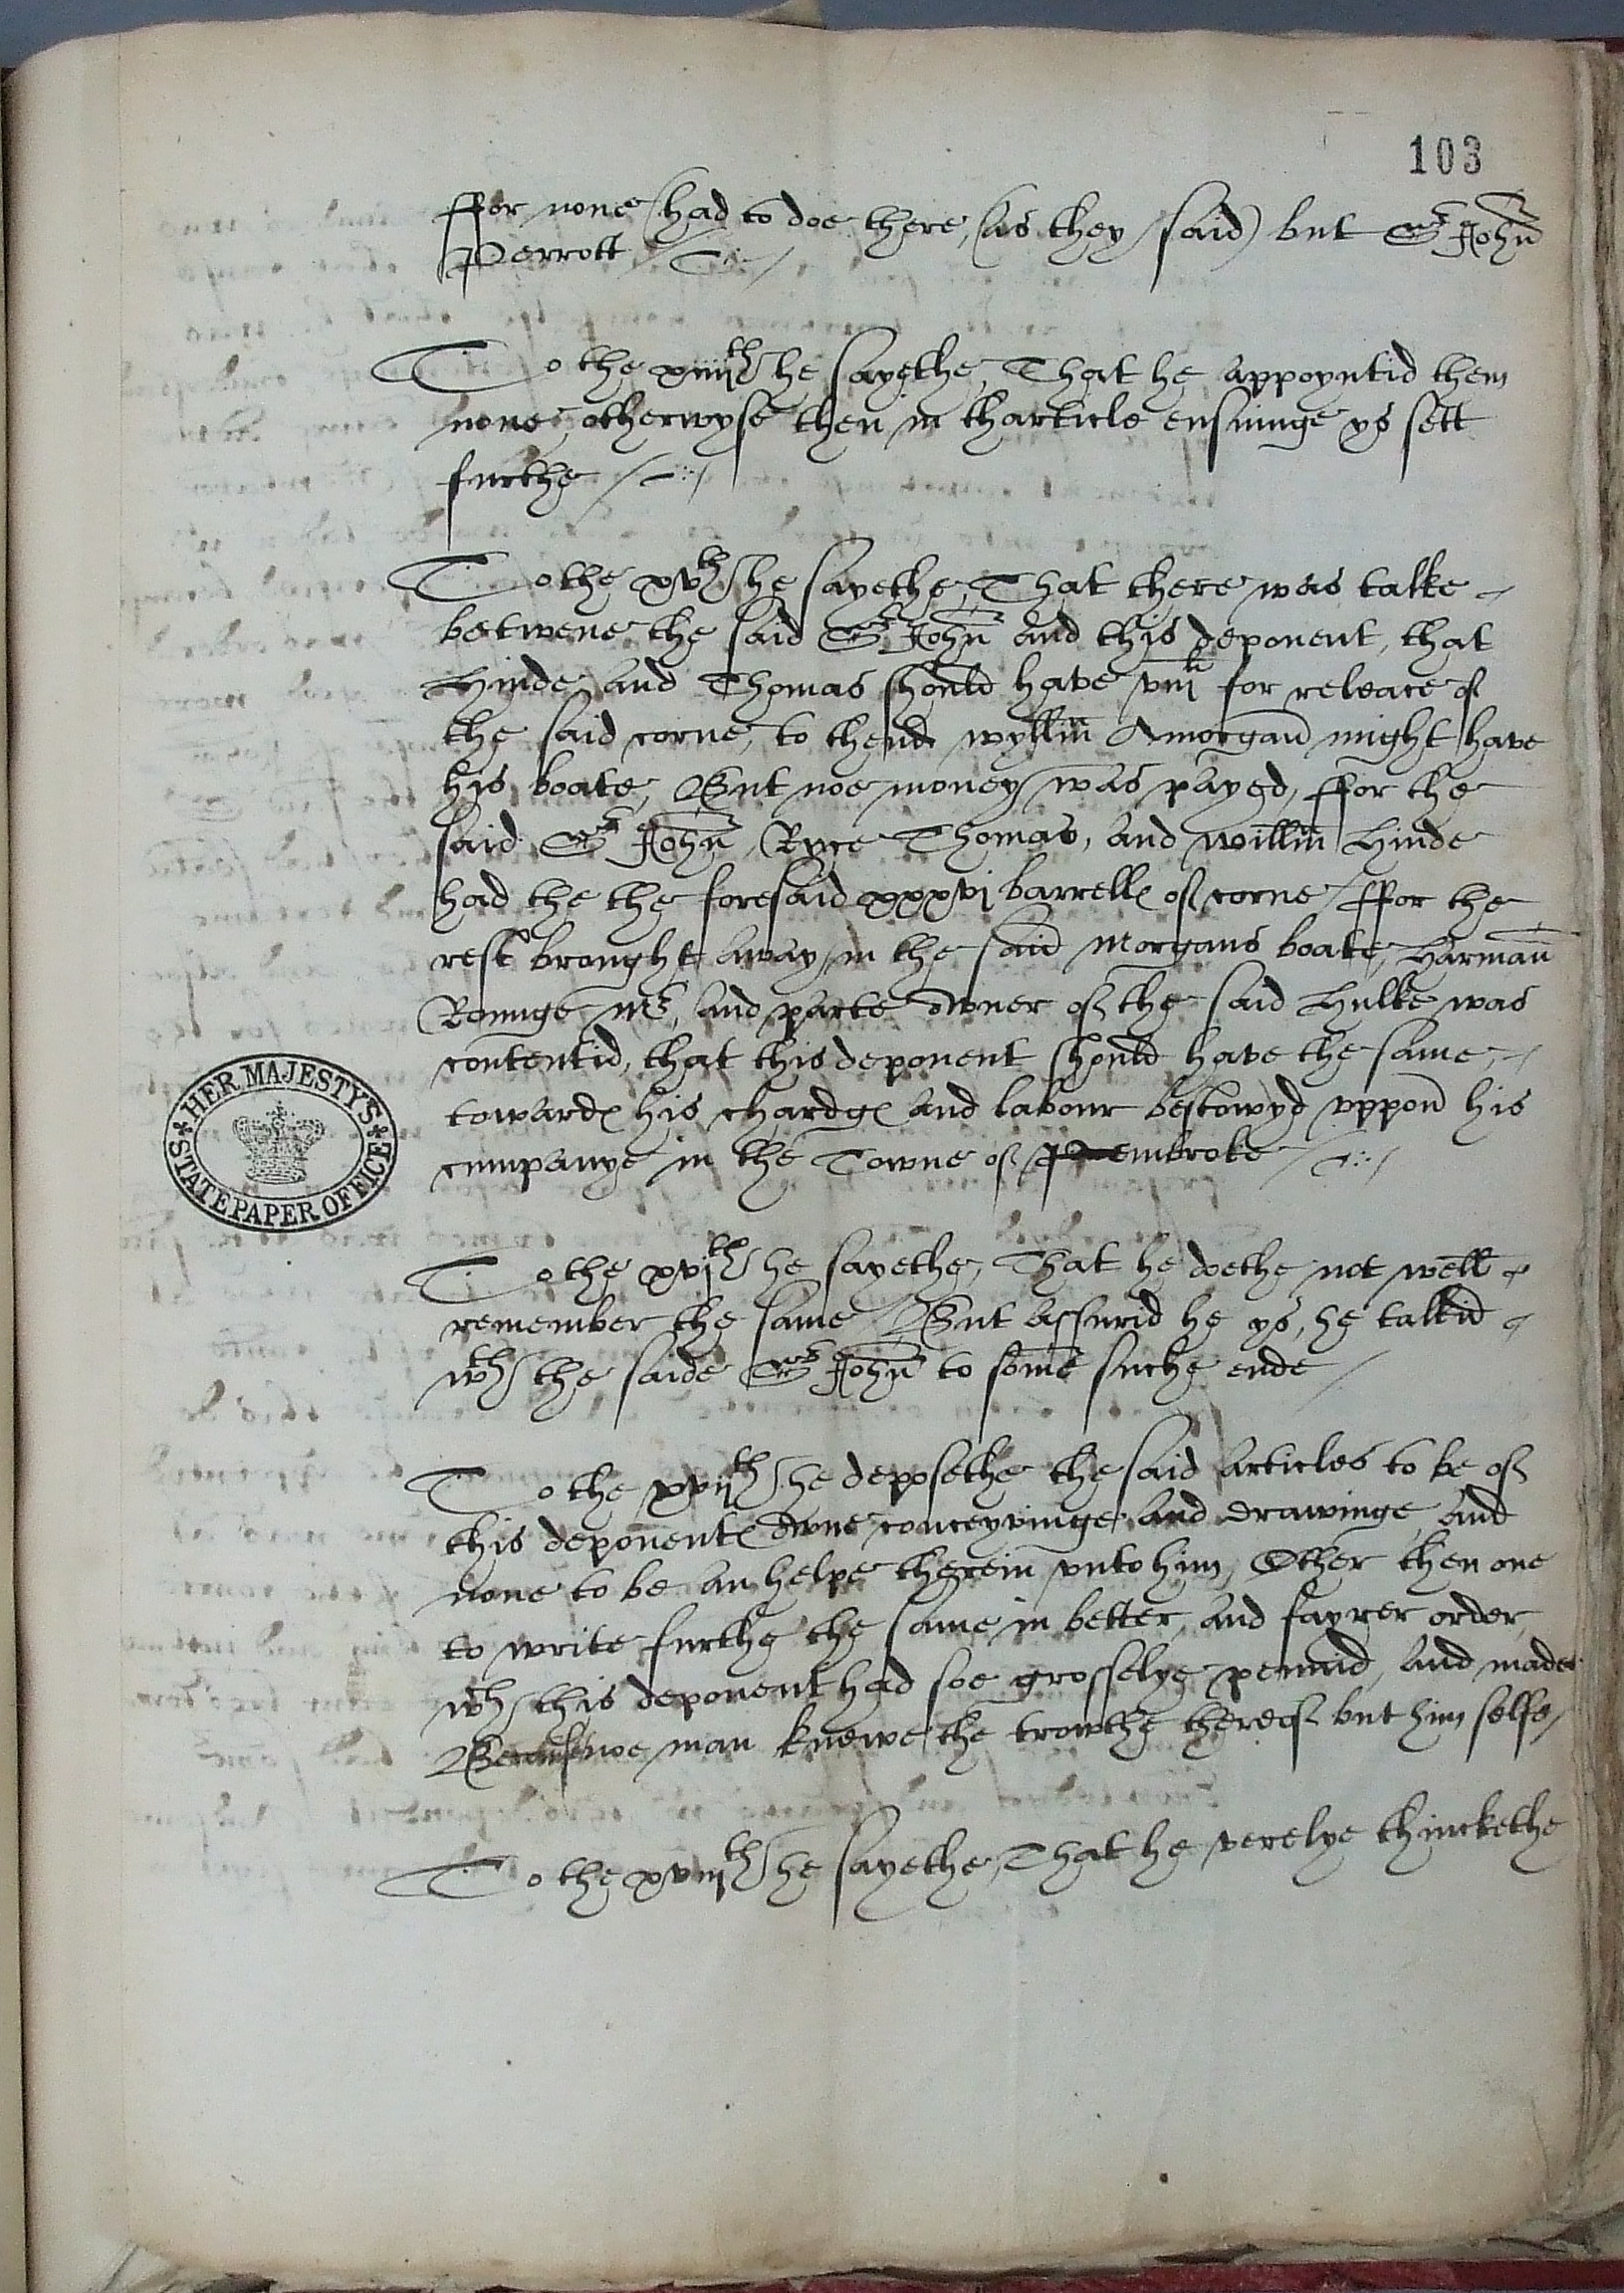 103
ffor none had to doe there, (as they said) but Sr John
Perrott
To the xiiijth he sayethe, That he appoyntid them
none, otherwyse then in tharticle ensuinge ys sett
furthe
To the xvth he sayethe, That there was talke
betwene the said Sr John and this deponent, that
Hinde and Thomas should have viijli for release of
the said corne, to thende wyllm Amorgan might have
his boate, But noe money was payed, ffor the
said Sr John, Ryce Thomas, and willm Hinde
had the the foresaid xxxvj barrells of corne / ffor the
rest brought away in the said Morgans boate, Harman
Ronnge mr, and parte owner of the said Hulke was
contentid, that this deponent should have the same,
towards his chardgs and labour bestowyd uppon his
cumpanye in the Towne of Pembroke
HER MAJESTY'S
STATE PAPER OFFICE
To the xvjth he sayethe, That he doethe not well
remember the same / But assurid he ys, he talkid
wth the saide Sr John to some suche ende
To the xvijth he deposethe the said articles to be of
this deponents owne conceyvinge and drawinge, and
none to be an helpe therein unto him, Other then one
to write furthe the same in better and fayrer order,
wch this deponent had soe grosselye pennid, and made
Because noe man knewe the trowthe thereof but him selfe,
To the xviijth he sayethe, That he verelye thinckethe